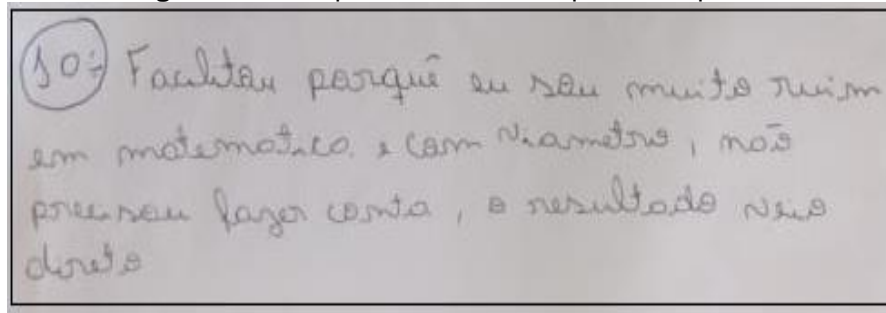 10: Facilitou porquê eu sou muito ruim
em matematica. e com Viametro, não
precisou fazer conta, o resultado veio
direto